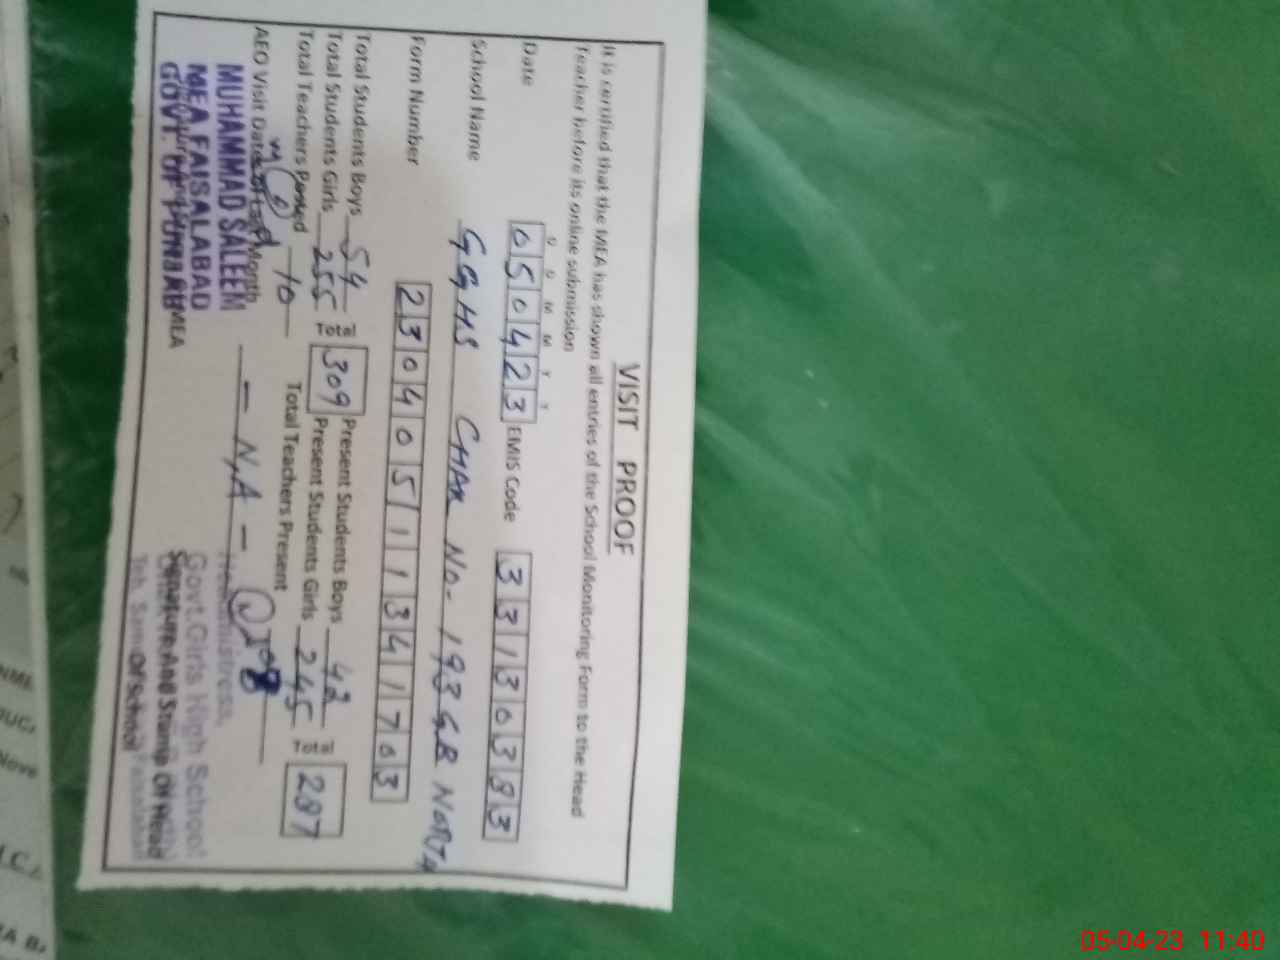 VISIT PROOF
It is certified that the MEA has shown all entries of the School Monitoring Form to the Head
Teacher before its online submission
D D M M Y Y
Date 050423 EMIS Code 33130383
School Name GGHS CHAK No- 193 GB NORTH
Form Number 23040511341703
Total Students Boys 54 Present Students Boys 42
Total Students Girls 255 Total 309 Present Students Girls 245 Total 287
Total Teachers Posted 10 Total Teachers Present 08
AEO Visit Date of Last Month - N,A -
MUHAMMAD SALEEM
MEA FAISALABAD
GOVT. OF PUNJAB MEA
Headmistress,
Govt. Girls High School
Signature And Stamp Of Head
Of School
05-04-23 11:40